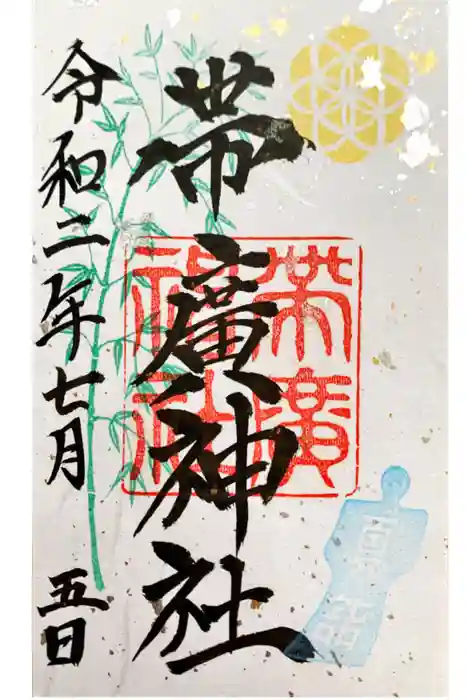 帯廣神社
令和二年七月五日
帯廣
神社